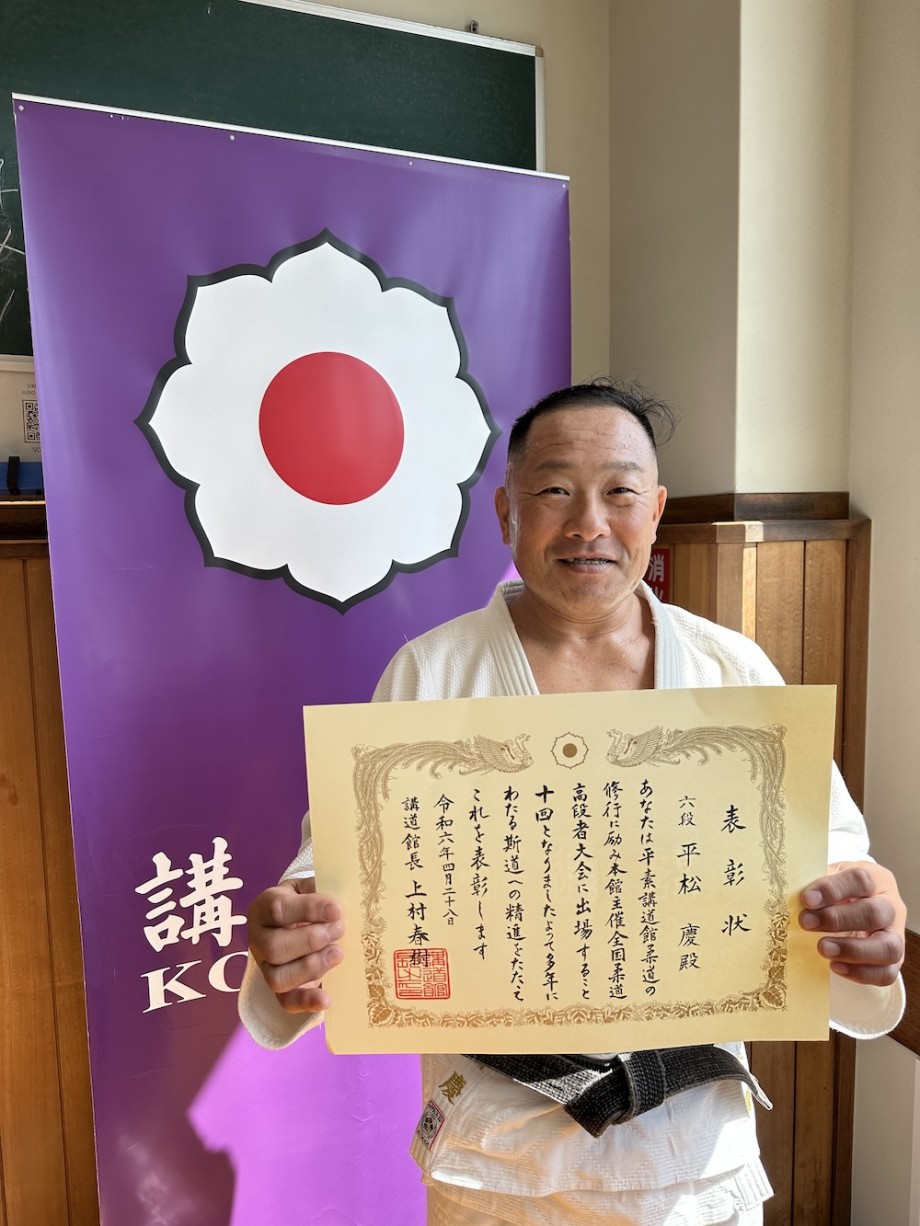 表彰状
六段 平松 慶殿
あなたは平素講道館柔道の
修行に励み本館主催全国柔道
高段者大会に出場すること
十回となりましたよって多年に
わたる斯道への精進をたたえ
これを表彰します
令和六年四月二十八日
講道館長 上村春樹
講
KO
消
慶